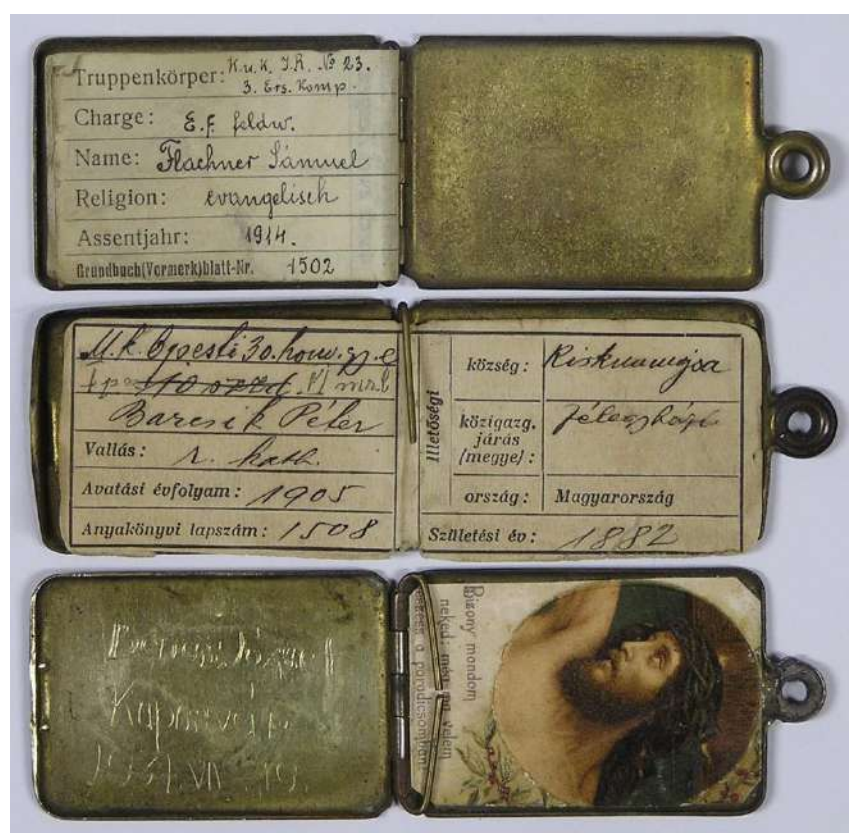 Truppenkörper: K.u.K. I.R. № 23.
3. Ers. Komp.
Charge: E.f. feldw.
Name: Flachner Sámuel
Religion: evangelisch
Assentjahr: 1914.
Grundbuch(Vormerk)blatt-Nr. 1502
M. k. bpesti 30. honv. gy. e
VI
Barcsik Péter
Vallás: r. kath.
Avatási évfolyam: 1905
Anyakönyvi lapszám: 1508
Illetőségi
község: Kiskunmajsa
közigazg.
járás
(megye):
ország: Magyarország
Születési év: 1882
József
Kaposvár
19
Bizony mondom
neked: még ma velem
leszesz a paradicsomban